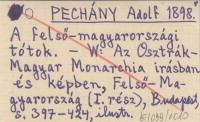 PECHÁNY Adolf 1898.
A felső-magyarországi
tótok. - W: Az Osztrák-
Magyar Monarchia irásban
és képben, Felső-Ma-
gyarország (I. rész), Budapest,
s. 397-424, ilustr.